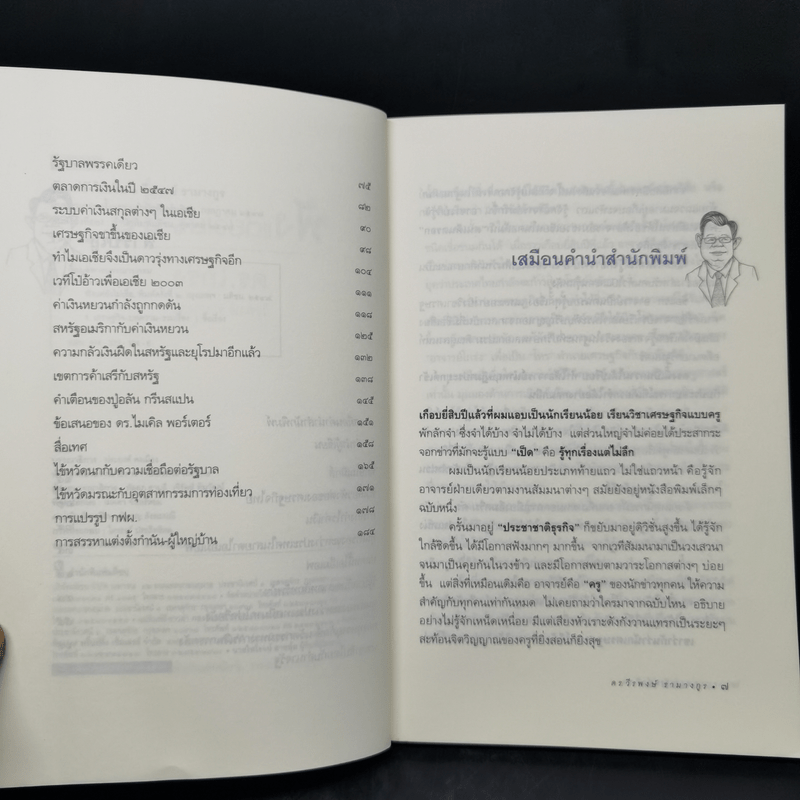 รัฐบาลพรรคเดียว ๗๕
ตลาดการเงินในปี ๒๕๔๗ ๘๒
ระบบค่าเงินสกุลต่างๆ ในเอเซีย ๙๐
เศรษฐกิจขาขึ้นของเอเซีย ๙๘
ทำไมเอเซียจึงเป็นดาวรุ่งทางเศรษฐกิจอีก ๑๐๔
เวทีโป๋อ้าวเพื่อเอเซีย ๒๐๐๓ ๑๑๑
ค่าเงินหยวนกำลังถูกกดดัน ๑๑๘
สหรัฐอเมริกากับค่าเงินหยวน ๑๒๕
ความกลัวเงินฝืดในสหรัฐและยุโรปมาอีกแล้ว ๑๓๒
เขตการค้าเสรีกับสหรัฐ ๑๓๘
คำเตือนของปู่อลัน กรีนสแปน ๑๔๕
ข้อเสนอของ ดร.ไมเคิล พอร์เตอร์ ๑๕๑
สื่อเทศ ๑๕๘
ไข้หวัดนกกับความเชื่อถือต่อรัฐบาล ๑๖๕
ไข้หวัดมรณะกับอุตสาหกรรมการท่องเที่ยว ๑๗๑
การแปรรูป กฟผ. ๑๗๘
การสรรหาแต่งตั้งกำนัน-ผู้ใหญ่บ้าน ๑๘๔
เสมือนคำนำสำนักพิมพ์
เกือบยี่สิบปีแล้วที่ผมแอบเป็นนักเรียนน้อย เรียนวิชาเศรษฐกิจแบบครู
พักลักจำ ซึ่งจำได้บ้าง จำไม่ได้บ้าง แต่ส่วนใหญ่จำไม่ค่อยได้ประสากระ
จอกข่าวที่มักจะรู้แบบ “เป็ด” คือ รู้ทุกเรื่องแต่ไม่ลึก
ผมเป็นนักเรียนน้อยประเภทท้ายแถว ไม่ใช่แถวหน้า คือรู้จัก
อาจารย์ฝ่ายเดียวตามงานสัมมนาต่างๆ สมัยยังอยู่หนังสือพิมพ์เล็กๆ
ฉบับหนึ่ง
ครั้นมาอยู่ “ประชาชาติธุรกิจ” ก็ขยับมาอยู่ดิวิชั่นสูงขึ้น ได้รู้จัก
ใกล้ชิดขึ้น ได้มีโอกาสฟังมากๆ มากขึ้น จากเวทีสัมมนามาเป็นวงเสวนา
จนมาเป็นคุยกันในวงข้าว และมีโอกาสพบตามวาระโอกาสต่างๆ บ่อย
ขึ้น แต่สิ่งที่เหมือนเดิมคือ อาจารย์คือ “ครู” ของนักข่าวทุกคน ให้ความ
สำคัญกับทุกคนเท่ากันหมด ไม่เคยถามว่าใครมาจากฉบับไหน อธิบาย
อย่างไม่รู้จักเหน็ดเหนื่อย มีแต่เสียงหัวเราะดังกังวานแทรกเป็นระยะๆ
สะท้อนจิตวิญญาณของครูที่ยิ่งสอนก็ยิ่งสุข
ดร.วีรพงษ์ รามางกูร • ๗